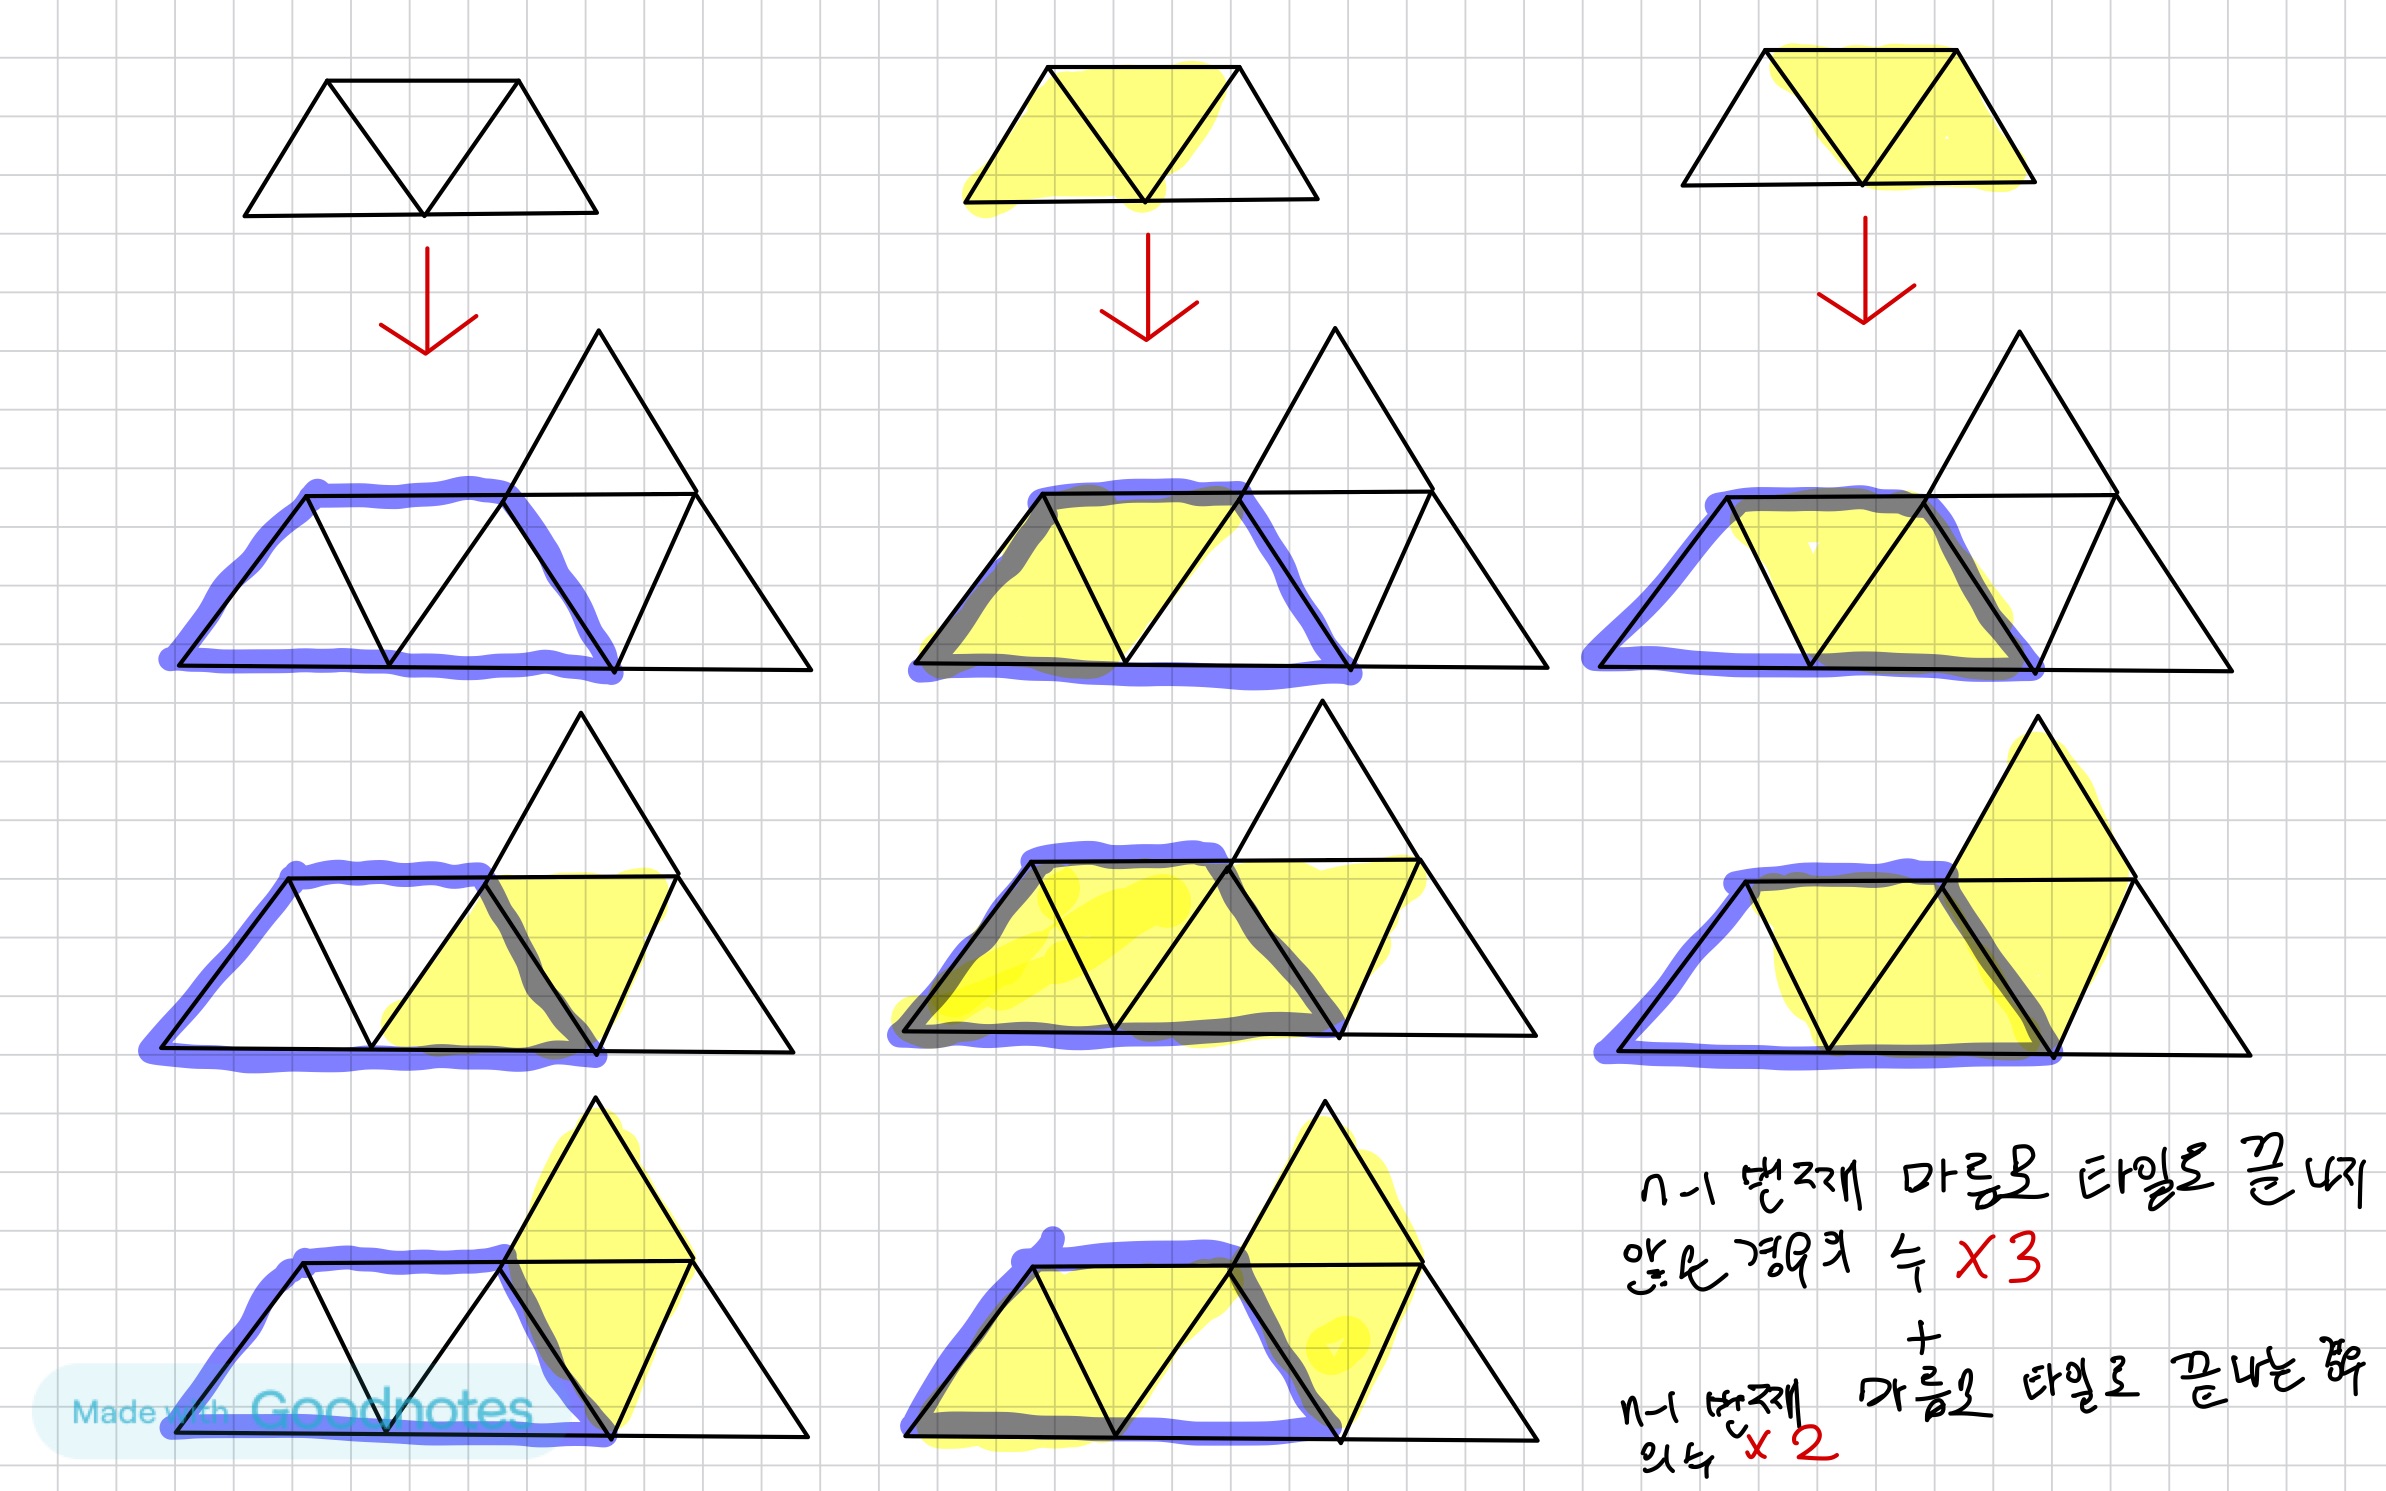 n-1 번째 마름모 타일로 끝내지
않는 경우의 수 x3
+
n-1 번째 마름모 타일로 끝내는 경우
의 수 x2
Made with Goodnotes